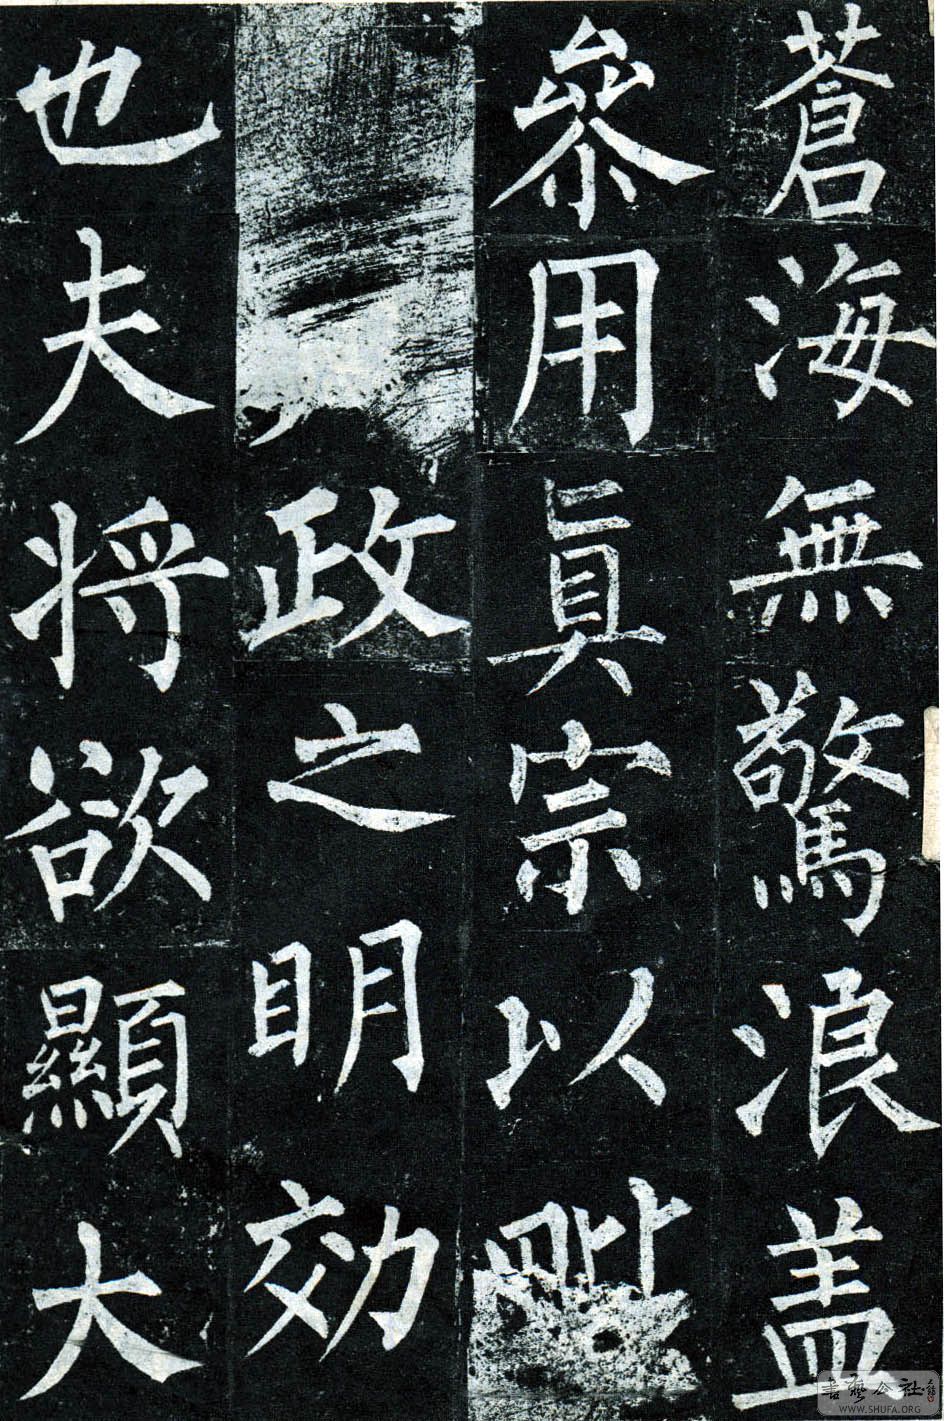 蒼海無驚浪盖
叅用眞宗以毗
政之眀効
也夫將欲顯大
書藝公社
WWW.SHUFA.ORG